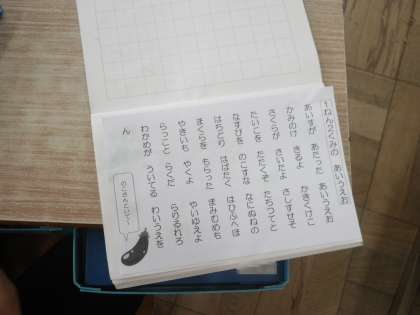 1ねん2くみの あいうえお
あいすが あたった あいうえお
かみのけ きるよ かきくけこ
さくらが さいたよ さしすせそ
たいこを たたくぞ たちつてと
なすびを のこすな なにぬねの
はちどり はばたく はひふへほ
まくらを もらった まみむめも
やきいも やくよ やいゆえよ
らっこと らくだ らりるれろ
わかめが ういてる わいうえを
ん
のこさんといて